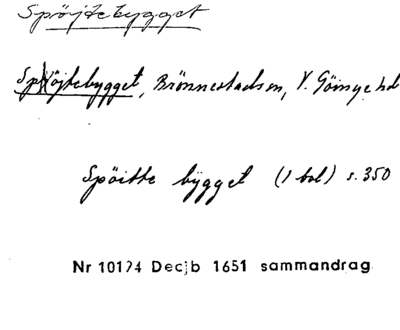 Spöjtebygget
Spöjtebygget, Brönnestads sn, V. Göinge hd
Spöitte bÿgget (1 bol) s. 350
Nr 10174 Decjb 1651 sammandrag